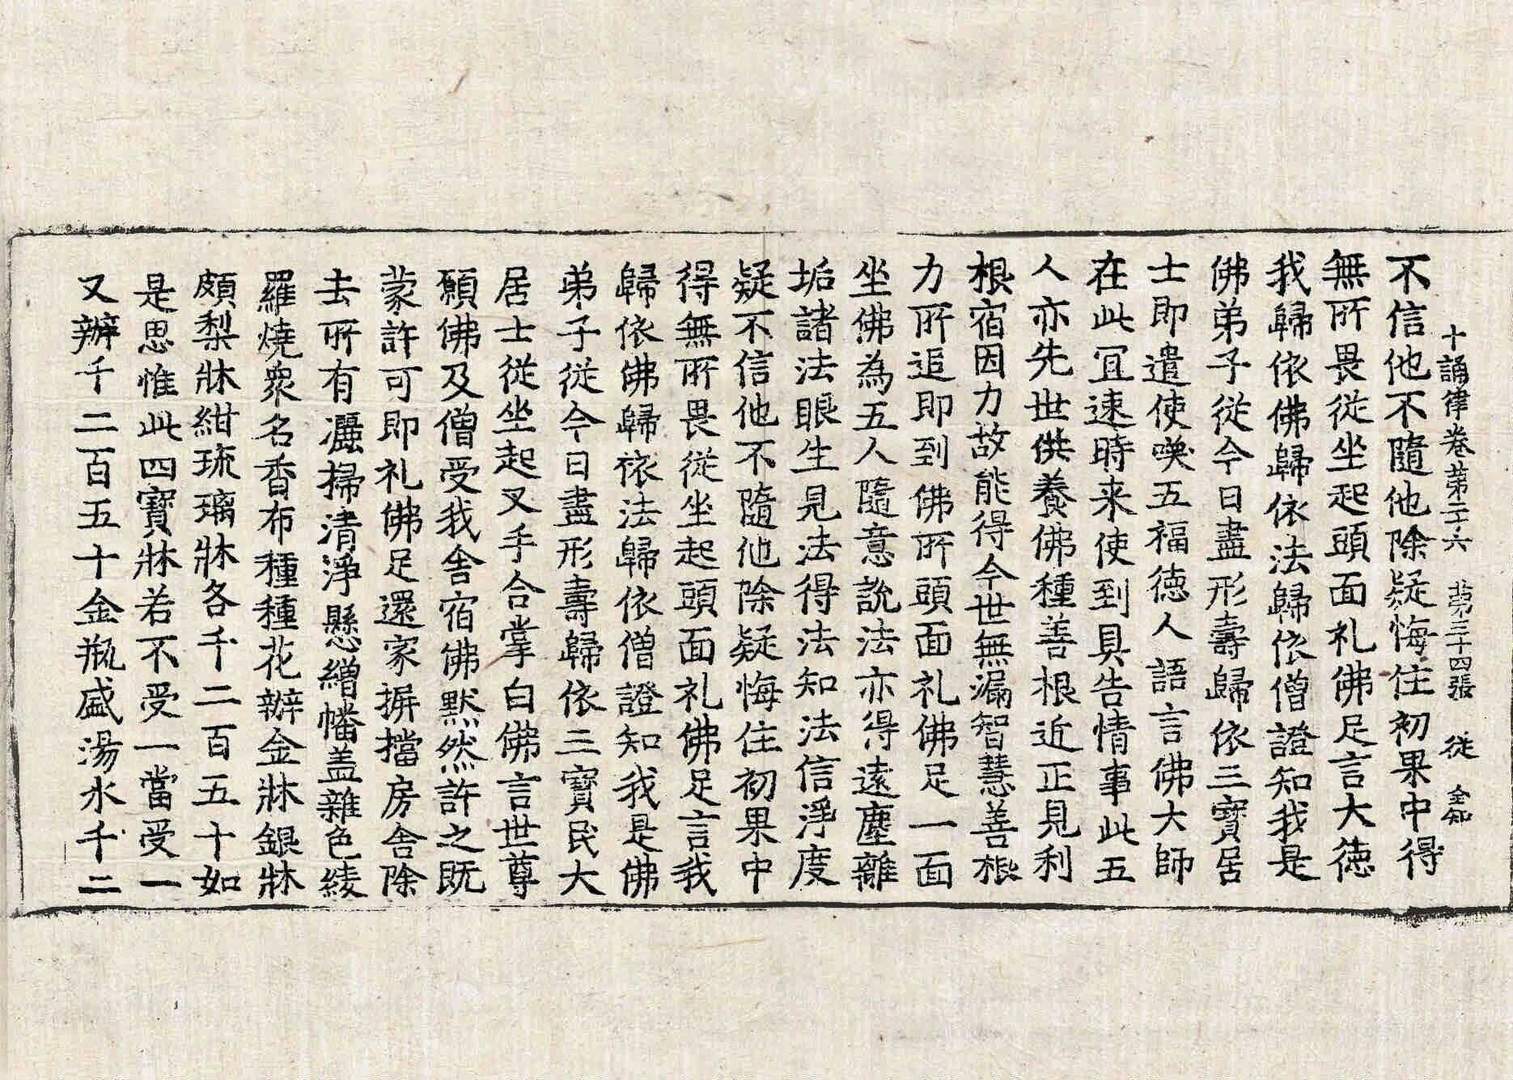 十誦律卷第二十六 苐三十四張 從 金知
不信他不隨他除疑悔住初果中得
無所畏從坐起頭面礼佛足言大德
我歸依佛歸依法歸依僧證知我是
佛弟子從今日盡形壽歸依三寶居
士即遣使喚五福德人語言佛大師
在此冝速時来使到具告情事此五
人亦先世供養佛種善根近正見利
根宿因力故能得今世無漏智慧善根
力所追即到佛所頭面礼佛足一面
坐佛為五人隨意說法亦得遠塵離
垢諸法眼生見法得法知法信淨度
疑不信他不隨他除疑悔住初果中
得無所畏從坐起頭面礼佛足言我
歸依佛歸依法歸依僧證知我是佛
弟子從今日盡形壽歸依三寶民大
居士從坐起叉手合掌白佛言世尊
願佛及僧受我舍宿佛默然許之既
蒙許可即礼佛足還家摒擋房舍除
去所有灑掃清淨懸繒幡盖雜色綾
羅燒衆名香布種種花辦金牀銀牀
頗梨牀紺琉璃牀各千二百五十如
是思惟此四寶牀若不受一當受一
又辦千二百五十金瓶盛湯水千二